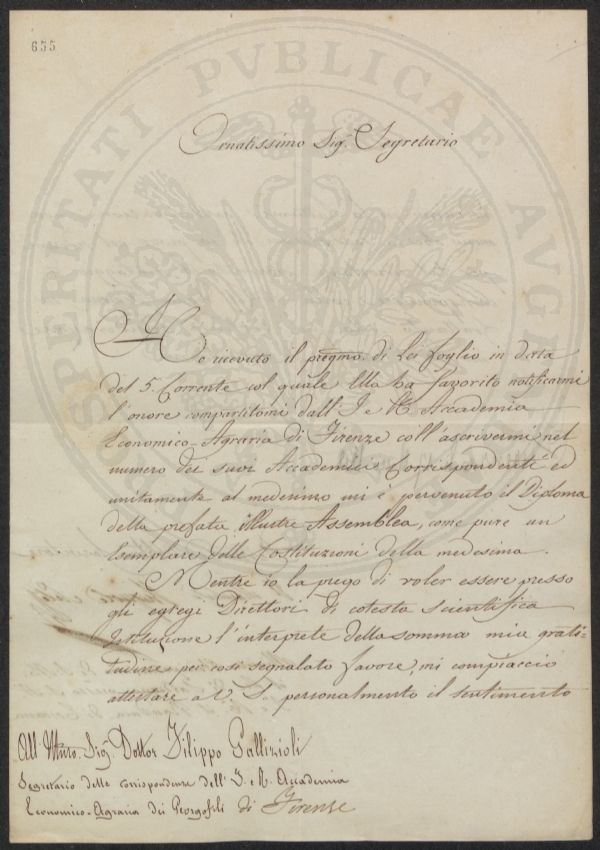 655
Ornatissimo Sig.r Segretario
Ho ricevuto il pregmo. di Lei foglio in data
del 5. Corrente col quale Ella ha favorito notificarmi
l'onore compartitomi dall'I. e R. Accademia
Economico-Agraria di Firenze coll'ascrivermi nel
numero dei suoi Accademici Corrispondenti ed
unitamente al medesimo mi è pervenuto il Diploma
della prefata illustre Assemblea, come pure un
Esemplare delle Costituzioni della medesima.
Mentre io la prego di voler essere presso
gli egregi Direttori di cotesta scientifica
Istituzione l'interprete della somma mia grati-
tudine per così segnalato favore, mi compiaccio
attestare a V. S. personalmente il sentimento
All' Sig.r Dottor Filippo Gallizioli
Segretario delle corrispondenze dell'I. e R. Accademia
Economico-Agraria dei Georgofili di Firenze